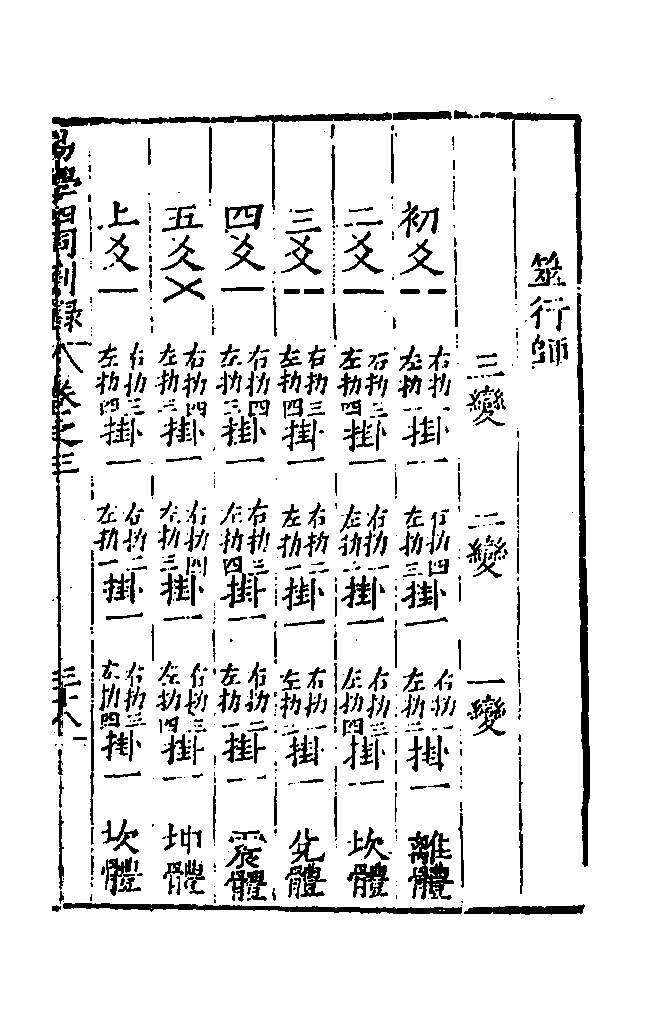 筮行師
三變 二變 一變
初爻 右扐 左扐 掛一 右扐四 左扐三 掛一 右扐 左扐 掛一 離體
二爻 右扐三 左扐四 掛一 右扐一 左扐 掛一 右扐三 左扐四 掛一 坎體
三爻 右扐三 左扐四 掛一 右扐二 左扐一 掛一 右扐 左扐 掛一 兌體
四爻 右扐四 左扐三 掛一 右扐三 左扐四 掛一 右扐二 左扐一 掛一 震體
五爻 右扐四 左扐三 掛一 右扐四 左扐三 掛一 右扐三 左扐四 掛一 坤體
上爻 右扐三 左扐四 掛一 右扐二 左扐一 掛一 右扐三 左扐四 掛一 坎體
易學四同別錄 卷之三 三十八